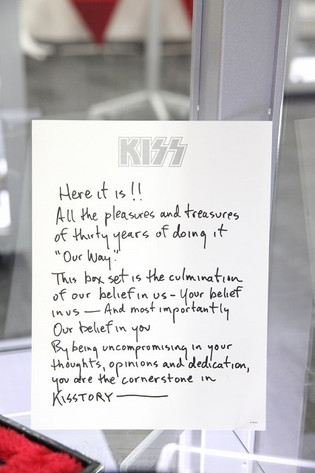 KISS
Here it is!!
All the pleasures and treasures
of thirty years of doing it
"Our Way."
This box set is the culmination
of our belief in us - Your belief
in us — And most importantly
Our belief in you
By being uncompromising in your
thoughts, opinions and dedication,
you are the cornerstone in
KISSTORY ———